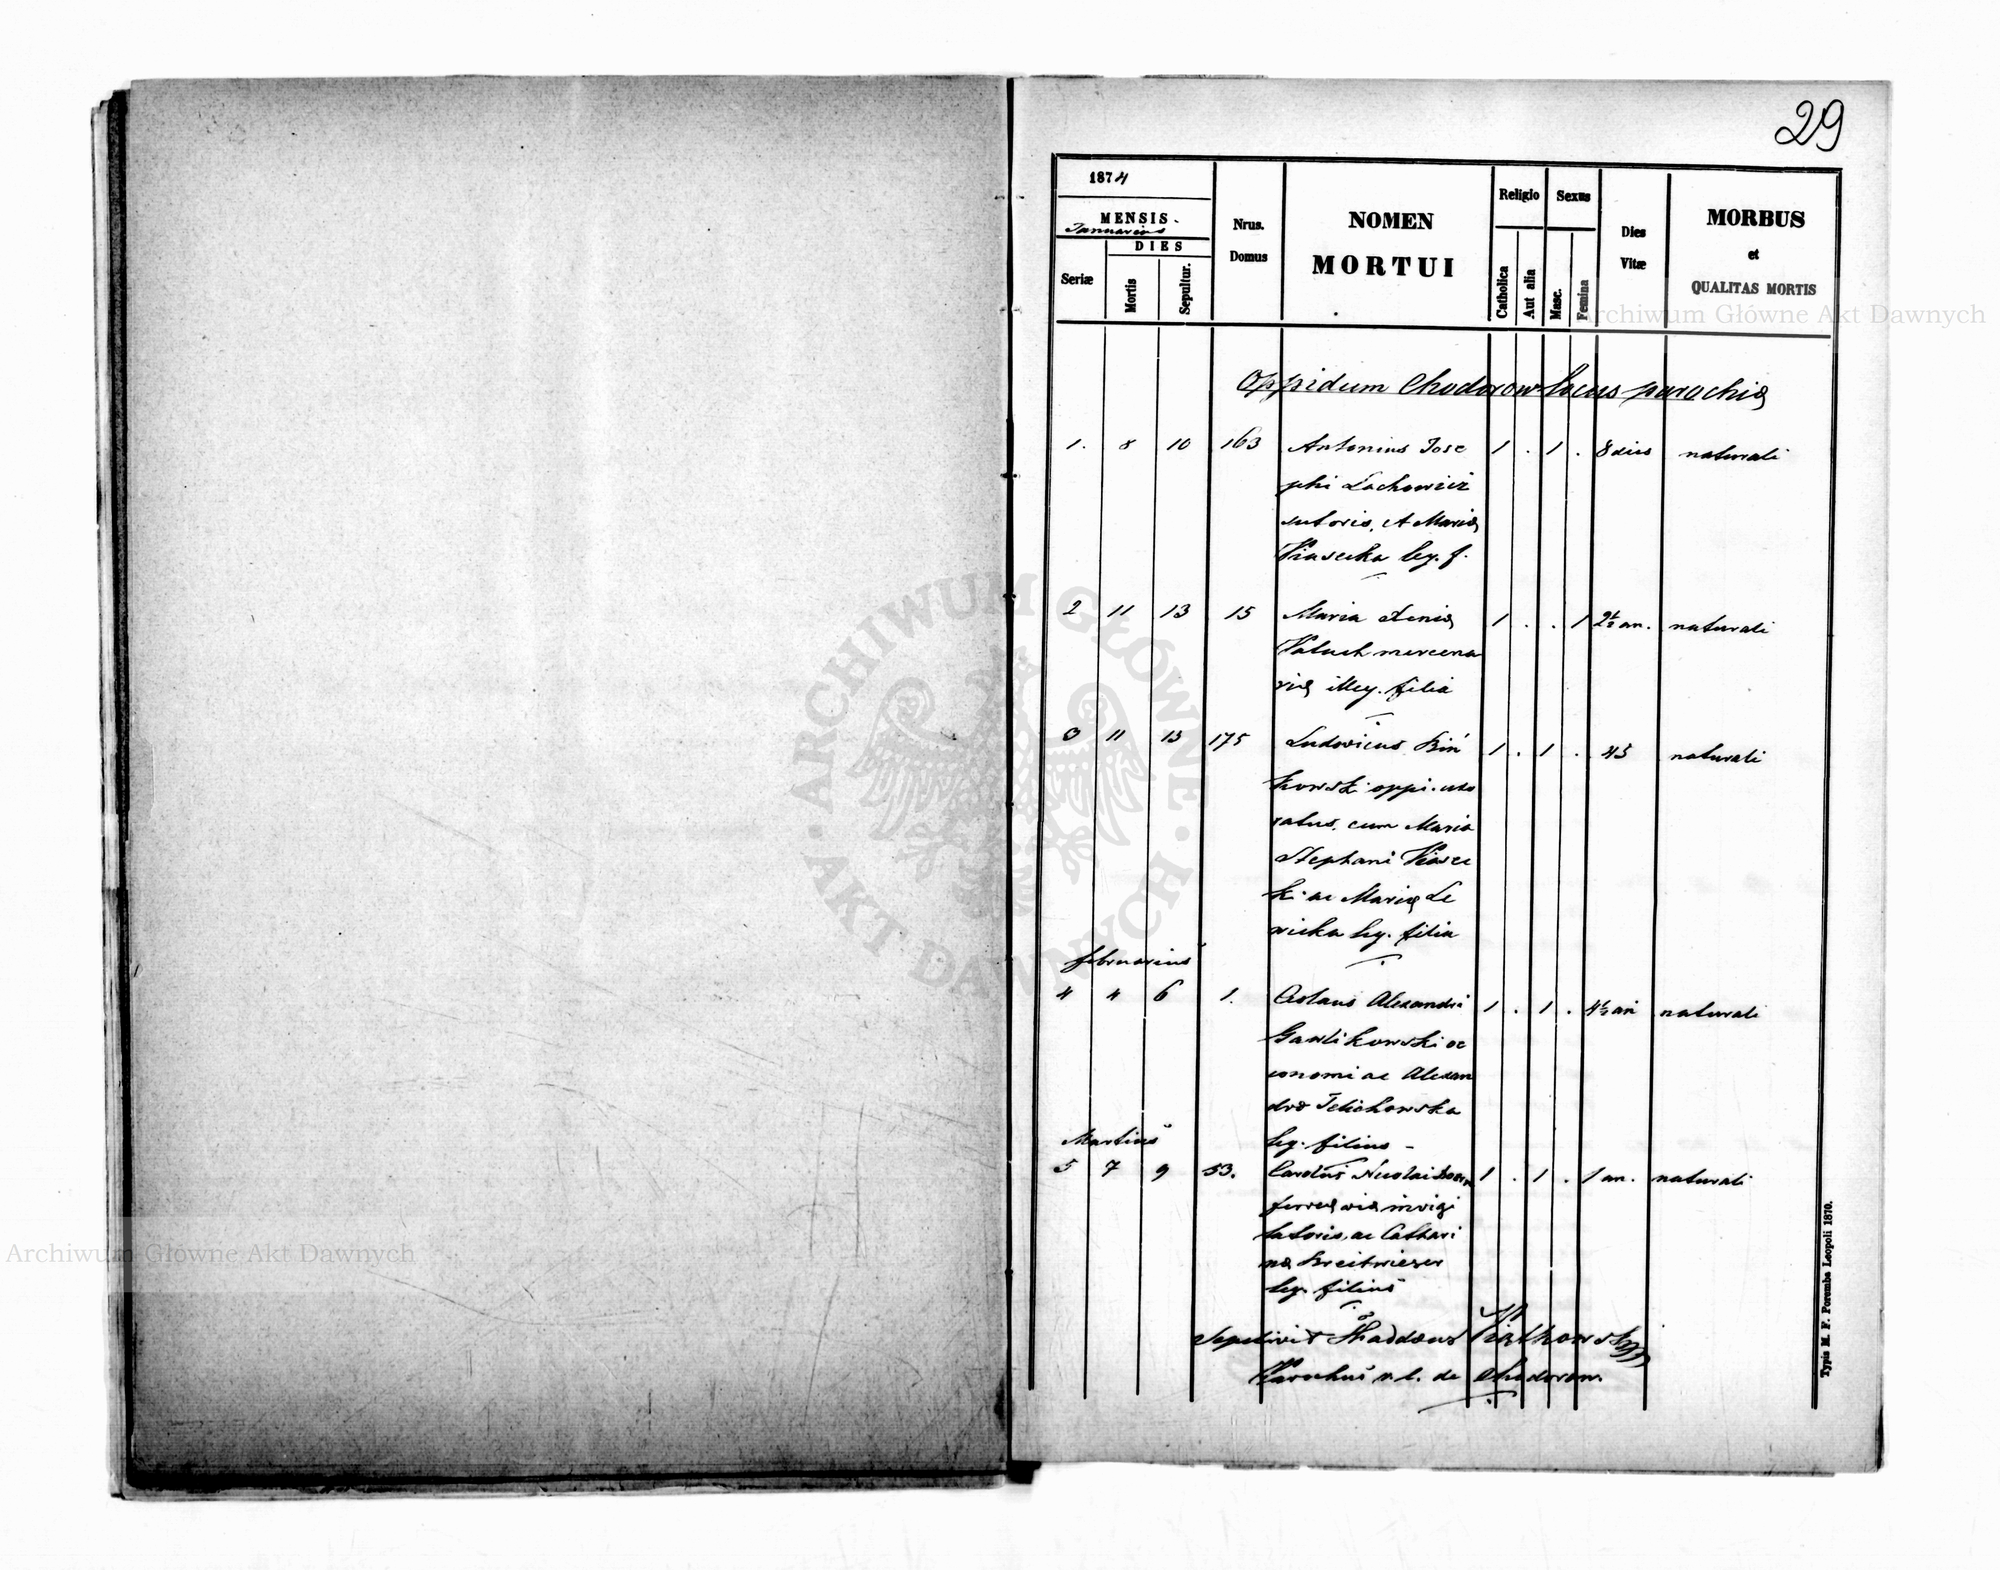 29
1874
MENSIS
Januarius
DIES
Seriæ
Mortis
Sepultur.
Nrus.
Domus
NOMEN
MORTUI
Religio
Catholica
Aut alia
Sexus
Masc.
Femina
Dies
Vitæ
MORBUS
et
QUALITAS MORTIS
Archiwum Główne Akt Dawnych
Oppidum Chodorow locus parochiæ
1. 8 10 163 Antonius Jose 1 . 1 . 8 dies naturali
phi Lachowicz
sutoris, et Mariæ
Piasecka leg. f.
2 11 13 15 Maria Xeniæ 1 . . 1 2½ an. naturali
mercena
riæ illeg. filia
3 11 13 175 Ludovicus Biń 1 . 1 . 45 naturali
kowski oppi. uxo
ratus, cum Maria
Stephani Piasec
ki ac Mariæ Le
wicka leg. filia
februarius
4 4 6 1. Alexandri 1 . 1 . 4½ an naturali
Gawlikowski oe
conomi ac Alexan
dræ
leg. filius -
Martius
5 7 9 53. Carolus Nicolai 1 . 1 . 1 an. naturali
ferreæ viæ invigi
latoris, ac Cathari
næ Breitwieser
leg. filius
Sepelivit Thaddæus Piątkowski
Parochus r. l. de Chodorow.
Typis M. F. Poremba Leopoli 1870.
ARCHIWUM GŁÓWNE · AKT DAWNYCH ·
Archiwum Główne Akt Dawnych